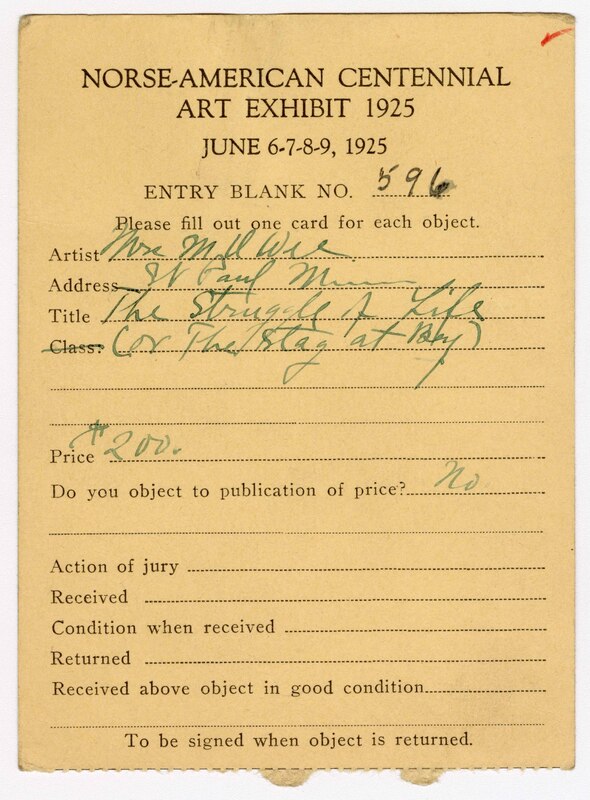 NORSE-AMERICAN CENTENNIAL
ART EXHIBIT 1925
JUNE 6-7-8-9, 1925
ENTRY BLANK NO. 596
Please fill out one card for each object.
Artist Mrs M O Wee
Address St Paul Minn
Title The Struggle of Life
Class: (or The Stag at Bay)
Price $200.
Do you object to publication of price? No
Action of jury
Received
Condition when received
Returned
Received above object in good condition
To be signed when object is returned.